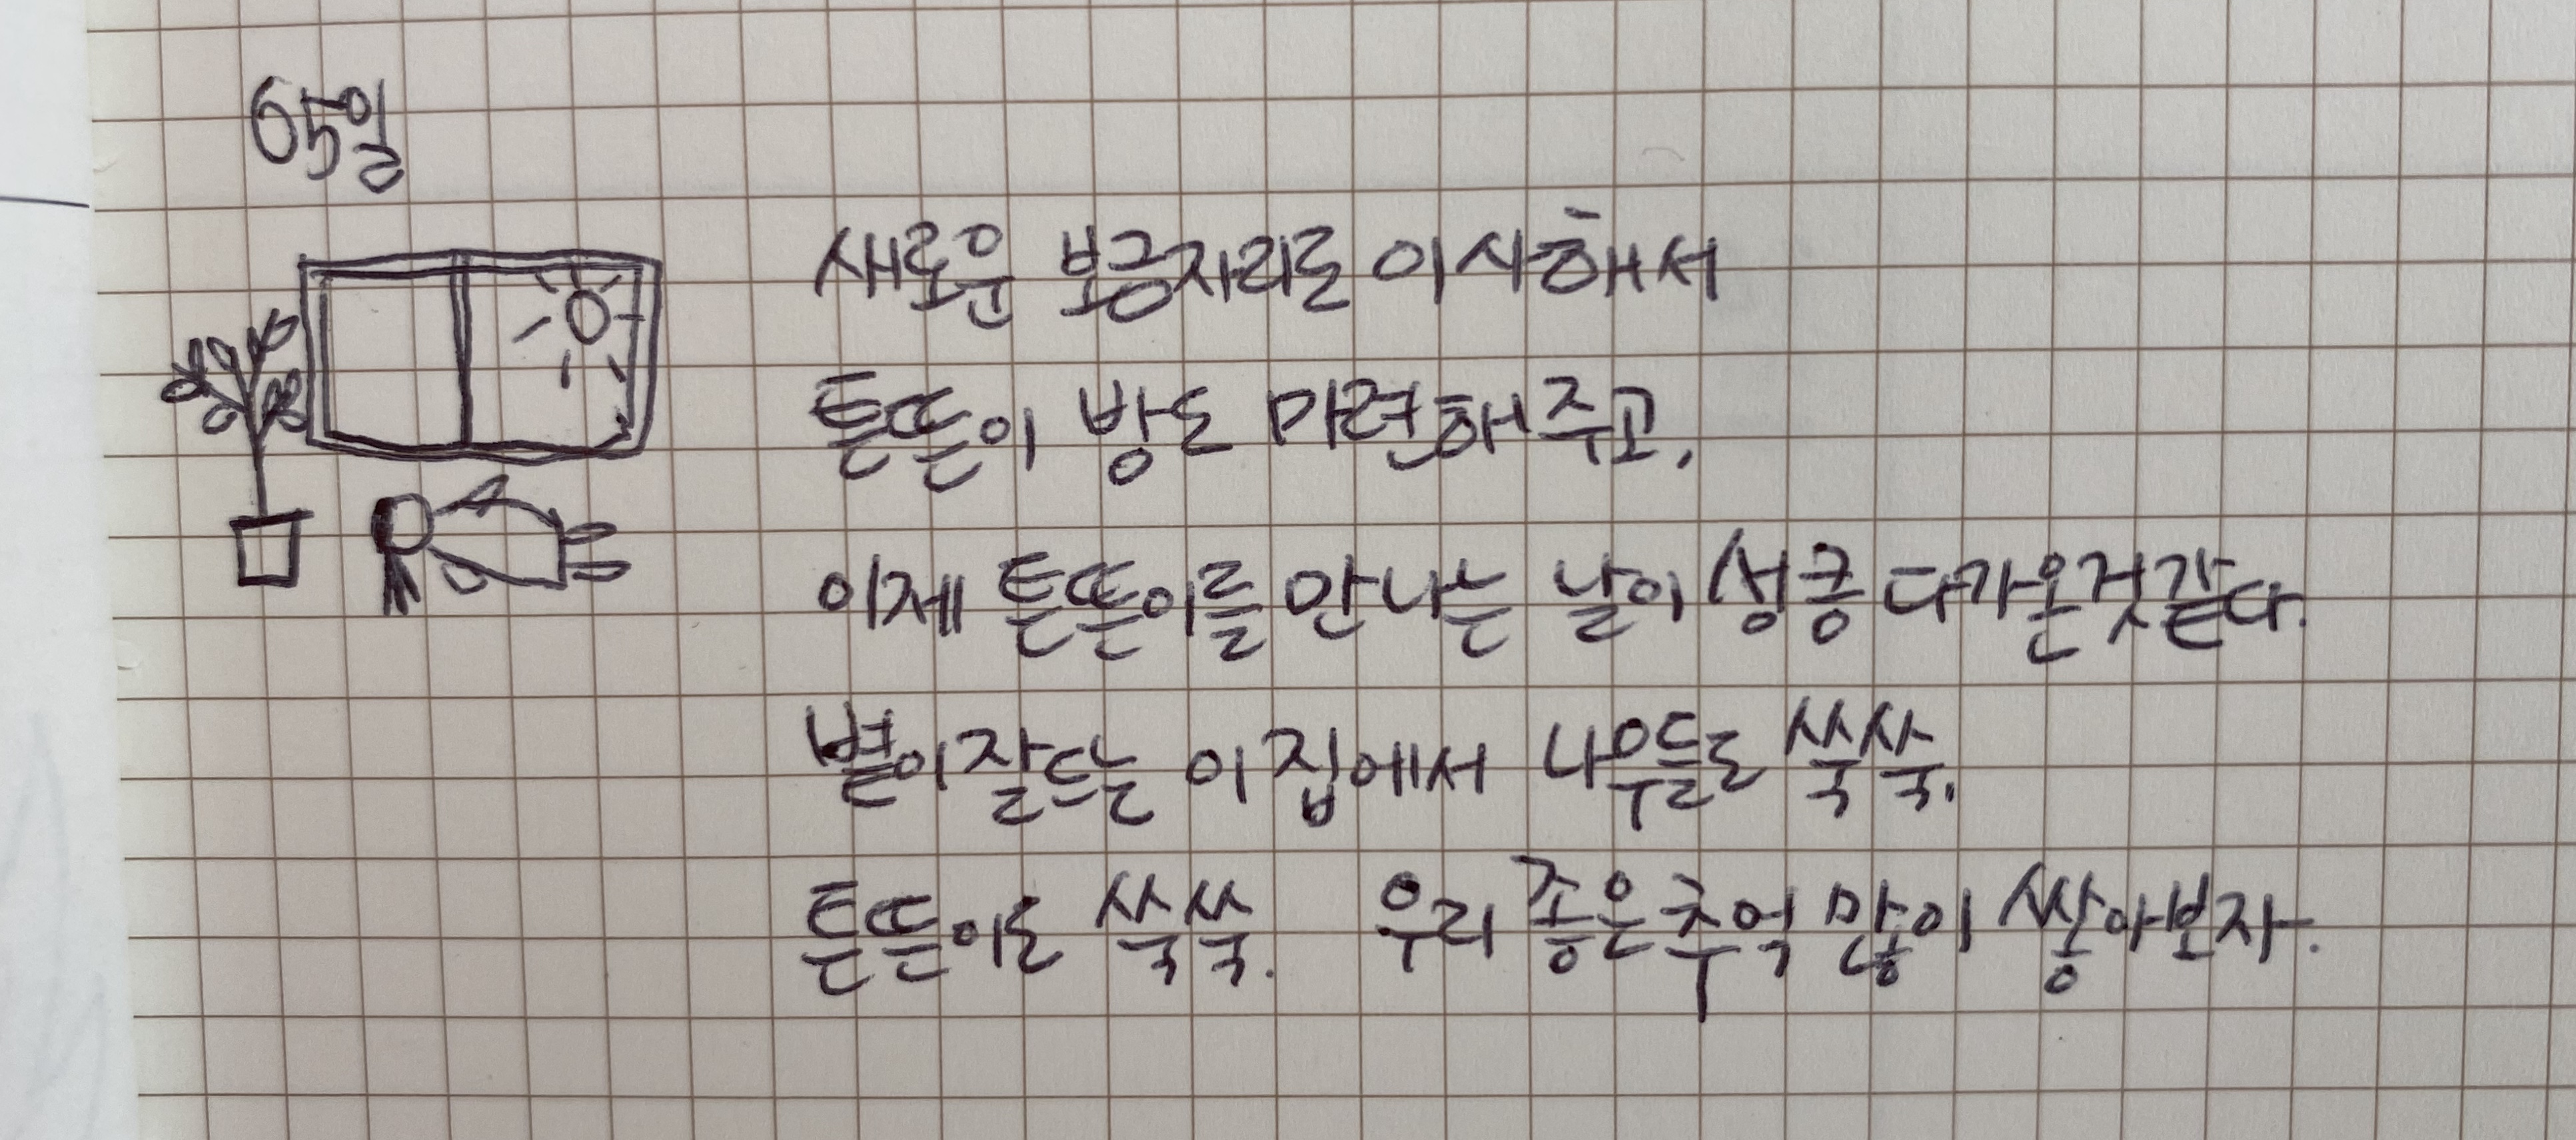 65일
새로운 보금자리로 이사해서
튼뜬이 방도 마련해주고,
이제 튼뜬이를 만나는 날이 성큼 다가온것같다.
볕이 잘드는 이 집에서 나무들도 쑥쑥,
튼뜬이도 쑥쑥. 우리 좋은 추억 많이 쌓아보자.